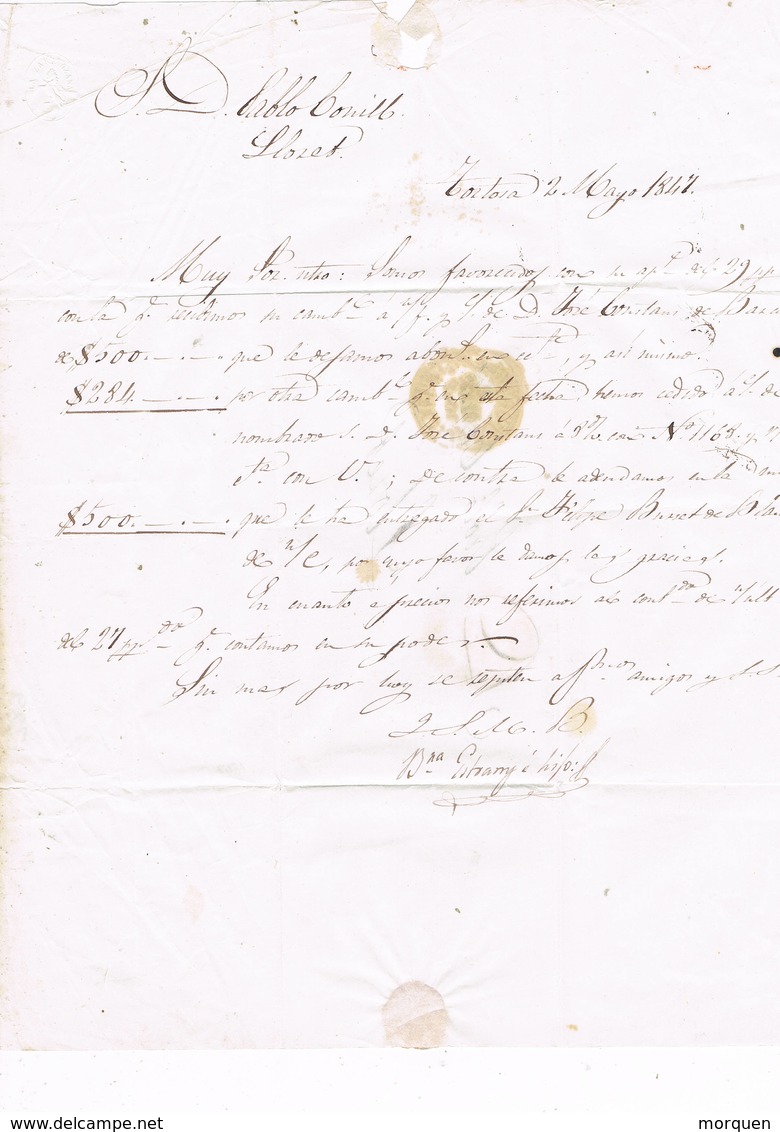 S. D. Pablo Conill
Lloret.
Tortosa 2 Mayo 1847.
Muy Sor. ntro: Somos favorecidos con su apª. del 29 pp
con la q. recibimos su camb.. á n/f. y c/. de D. José Constans de
de $500.—.—. que le dejamos abon.. en cta, y asi mismo.
$284.—.—. por otra camb.. q. en esta fecha hemos cedido á c/. de
nombrado S. D. José Constans á 8 d/v. con Nº 1168. y
con V.; de contra le adeudamos en la
$500.—.—. que le ha entregado el Sr. Felipe de
de n/c, por cuyo favor le damos las gracias.
En cuanto a precios nos referimos al cont.do de n/ult
del 27 pp.do q. contamos en su poder.
Sin mas por hoy se repiten afmos amigos y S. S.
Q. S. M. B.
Bna Estrany é hijo
morquen